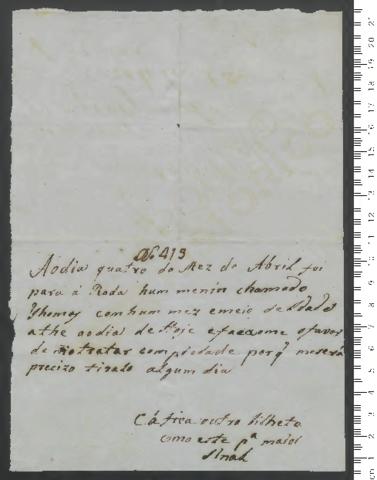 Nº 413
Aodia quatro do Mez de Abril foi
para á Roda hum menin chamado
Thomas com hum mez emeio de Idade
athe aodia de Hoje efacaome ofavor
de o tratar com piedade porq meserá
precizo tiralo algum dia
Cá fica outro bilheto
como este pª maior
sinal